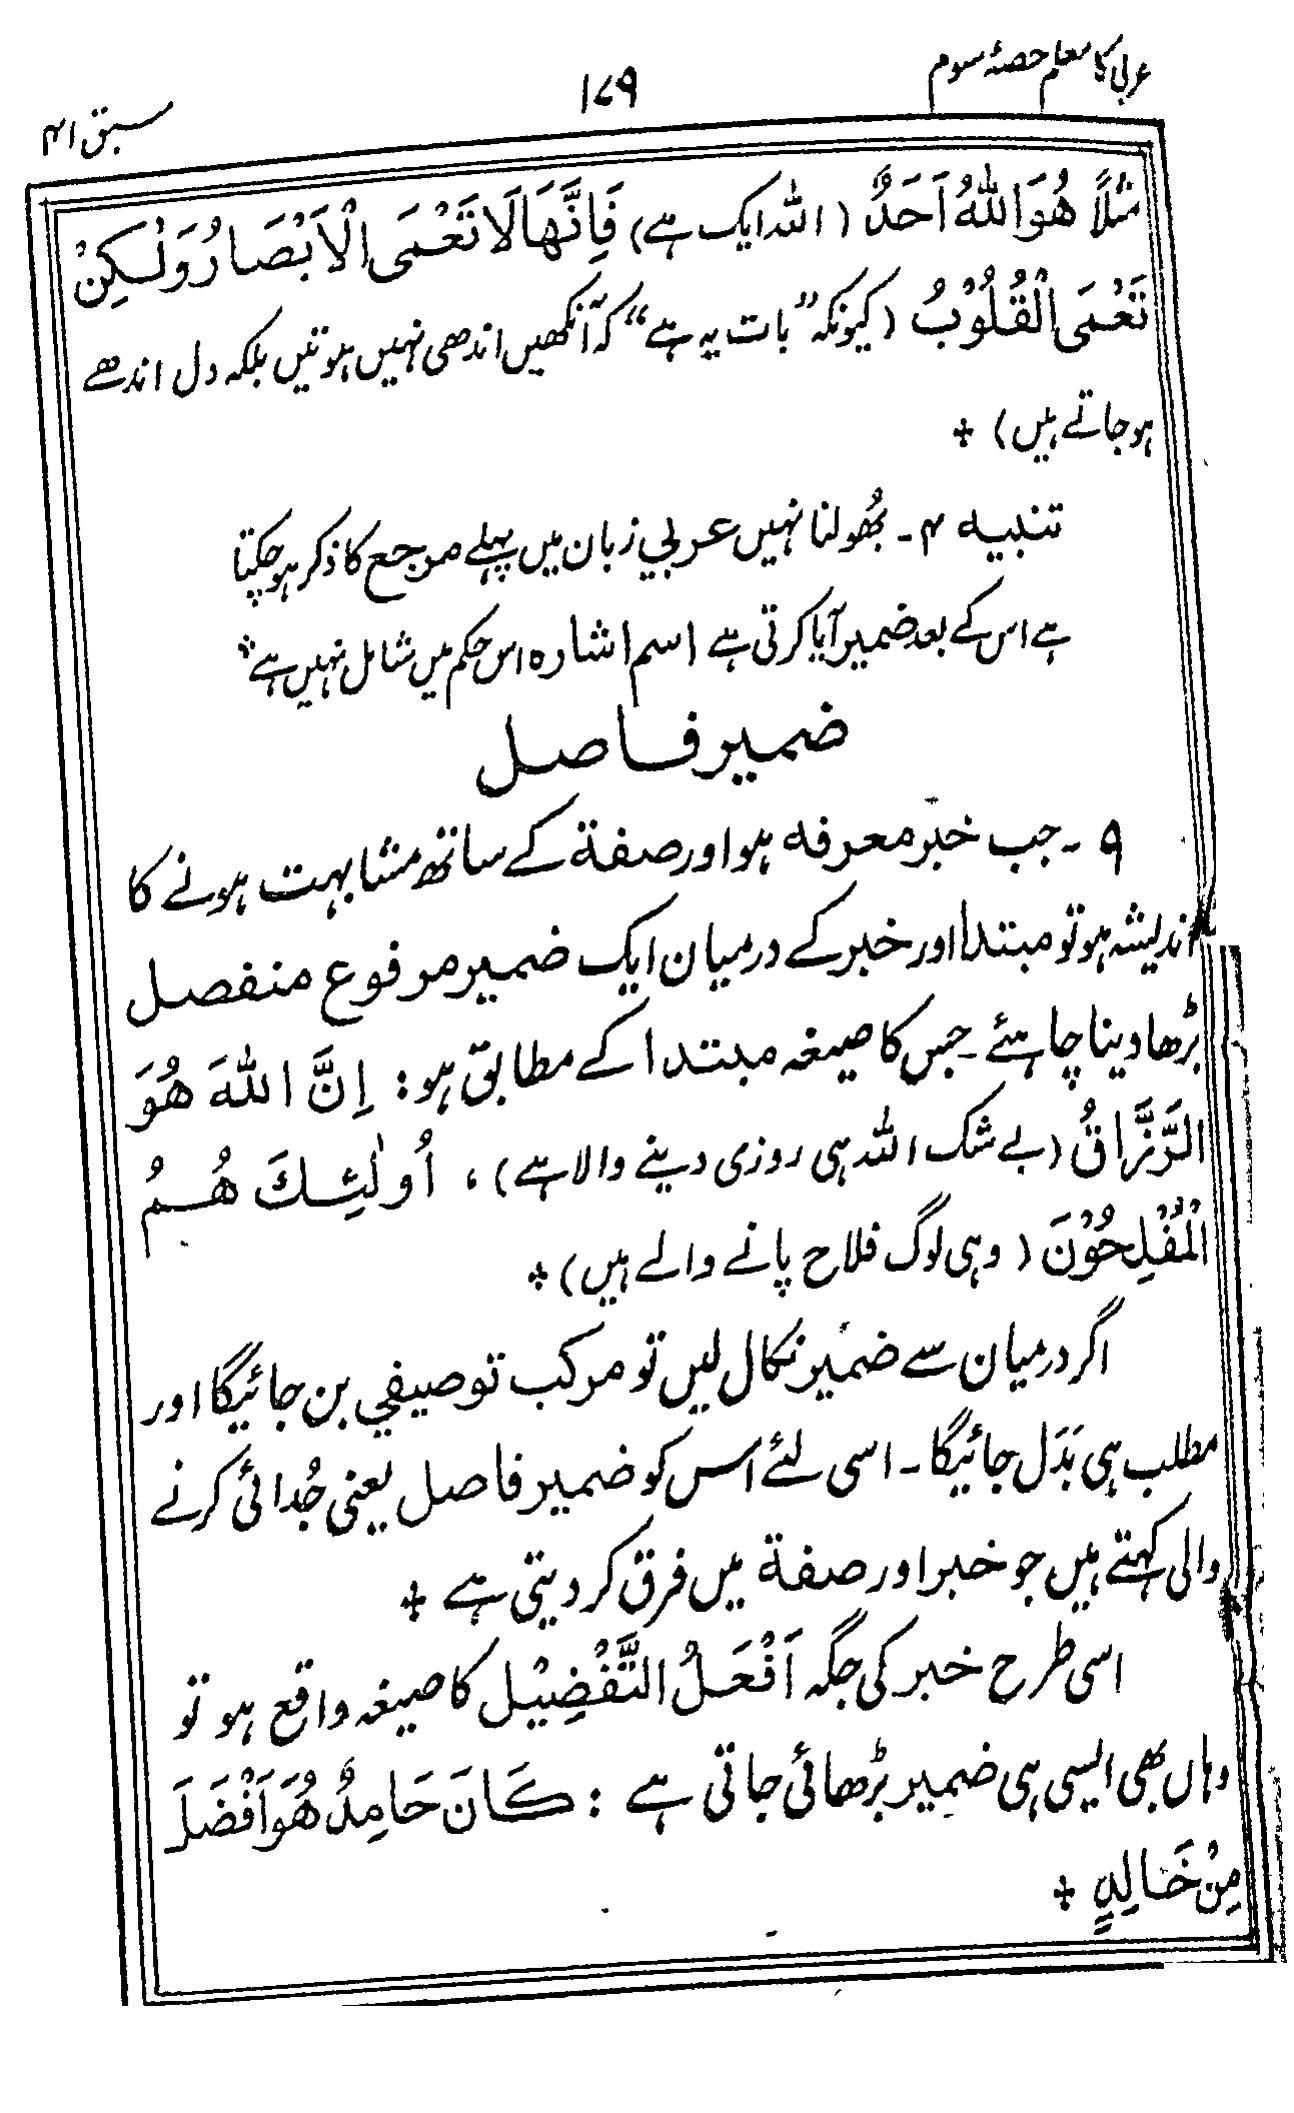 عربی کا معلم حصۂ سوم
۱۷۹
سبق ۴۱
مثلًا هُوَ اللّٰهُ اَحَدٌ (اللہ ایک ہے) فَاِنَّهَا لَا تَعْمَى الْاَبْصَارُ وَلٰكِنْ
تَعْمَى الْقُلُوْبُ (کیونکہ ”بات یہ ہے“ کہ آنکھیں اندھی نہیں ہوتیں بلکہ دل اندھے
ہوجاتے ہیں) ÷
تنبیہ ۴۔ بھُولنا نہیں عربی زبان میں پہلے مرجع کا ذکر ہو چکتا
ہے اس کے بعد ضمیر آیا کرتی ہے اسم اشارہ اس حکم میں شامل نہیں ہے ÷
ضمیر فاصل
۹۔ جب خبر معرفہ ہو اور صفة کے ساتھ مشابہت ہونے کا
اندیشہ ہو تو مبتدا اور خبر کے درمیان ایک ضمیر مرفوع منفصل
بڑھا دینا چاہئے۔ جس کا صیغہ مبتدا کے مطابق ہو: اِنَّ اللّٰهَ هُوَ
الرَّزَّاقُ (بے شک اللہ ہی روزی دینے والا ہے)، اُولٰئِكَ هُمُ
الْمُفْلِحُوْنَ (وہی لوگ فلاح پانے والے ہیں) ÷
اگر درمیان سے ضمیر نکال لیں تو مرکب توصیفی بن جائیگا اور
مطلب ہی بَدَل جائیگا۔ اسی لئے اس کو ضمیر فاصل یعنی جُدائی کرنے
والی کہتے ہیں جو خبر اور صفة میں فرق کر دیتی ہے ÷
اسی طرح خبر کی جگہ اَفْعَلُ التَّفْضِيْل کا صیغہ واقع ہو تو
وہاں بھی ایسی ہی ضمیر بڑھائی جاتی ہے : كَانَ حَامِدٌ هُوَ اَفْضَلَ
مِنْ خَالِدٍ ÷